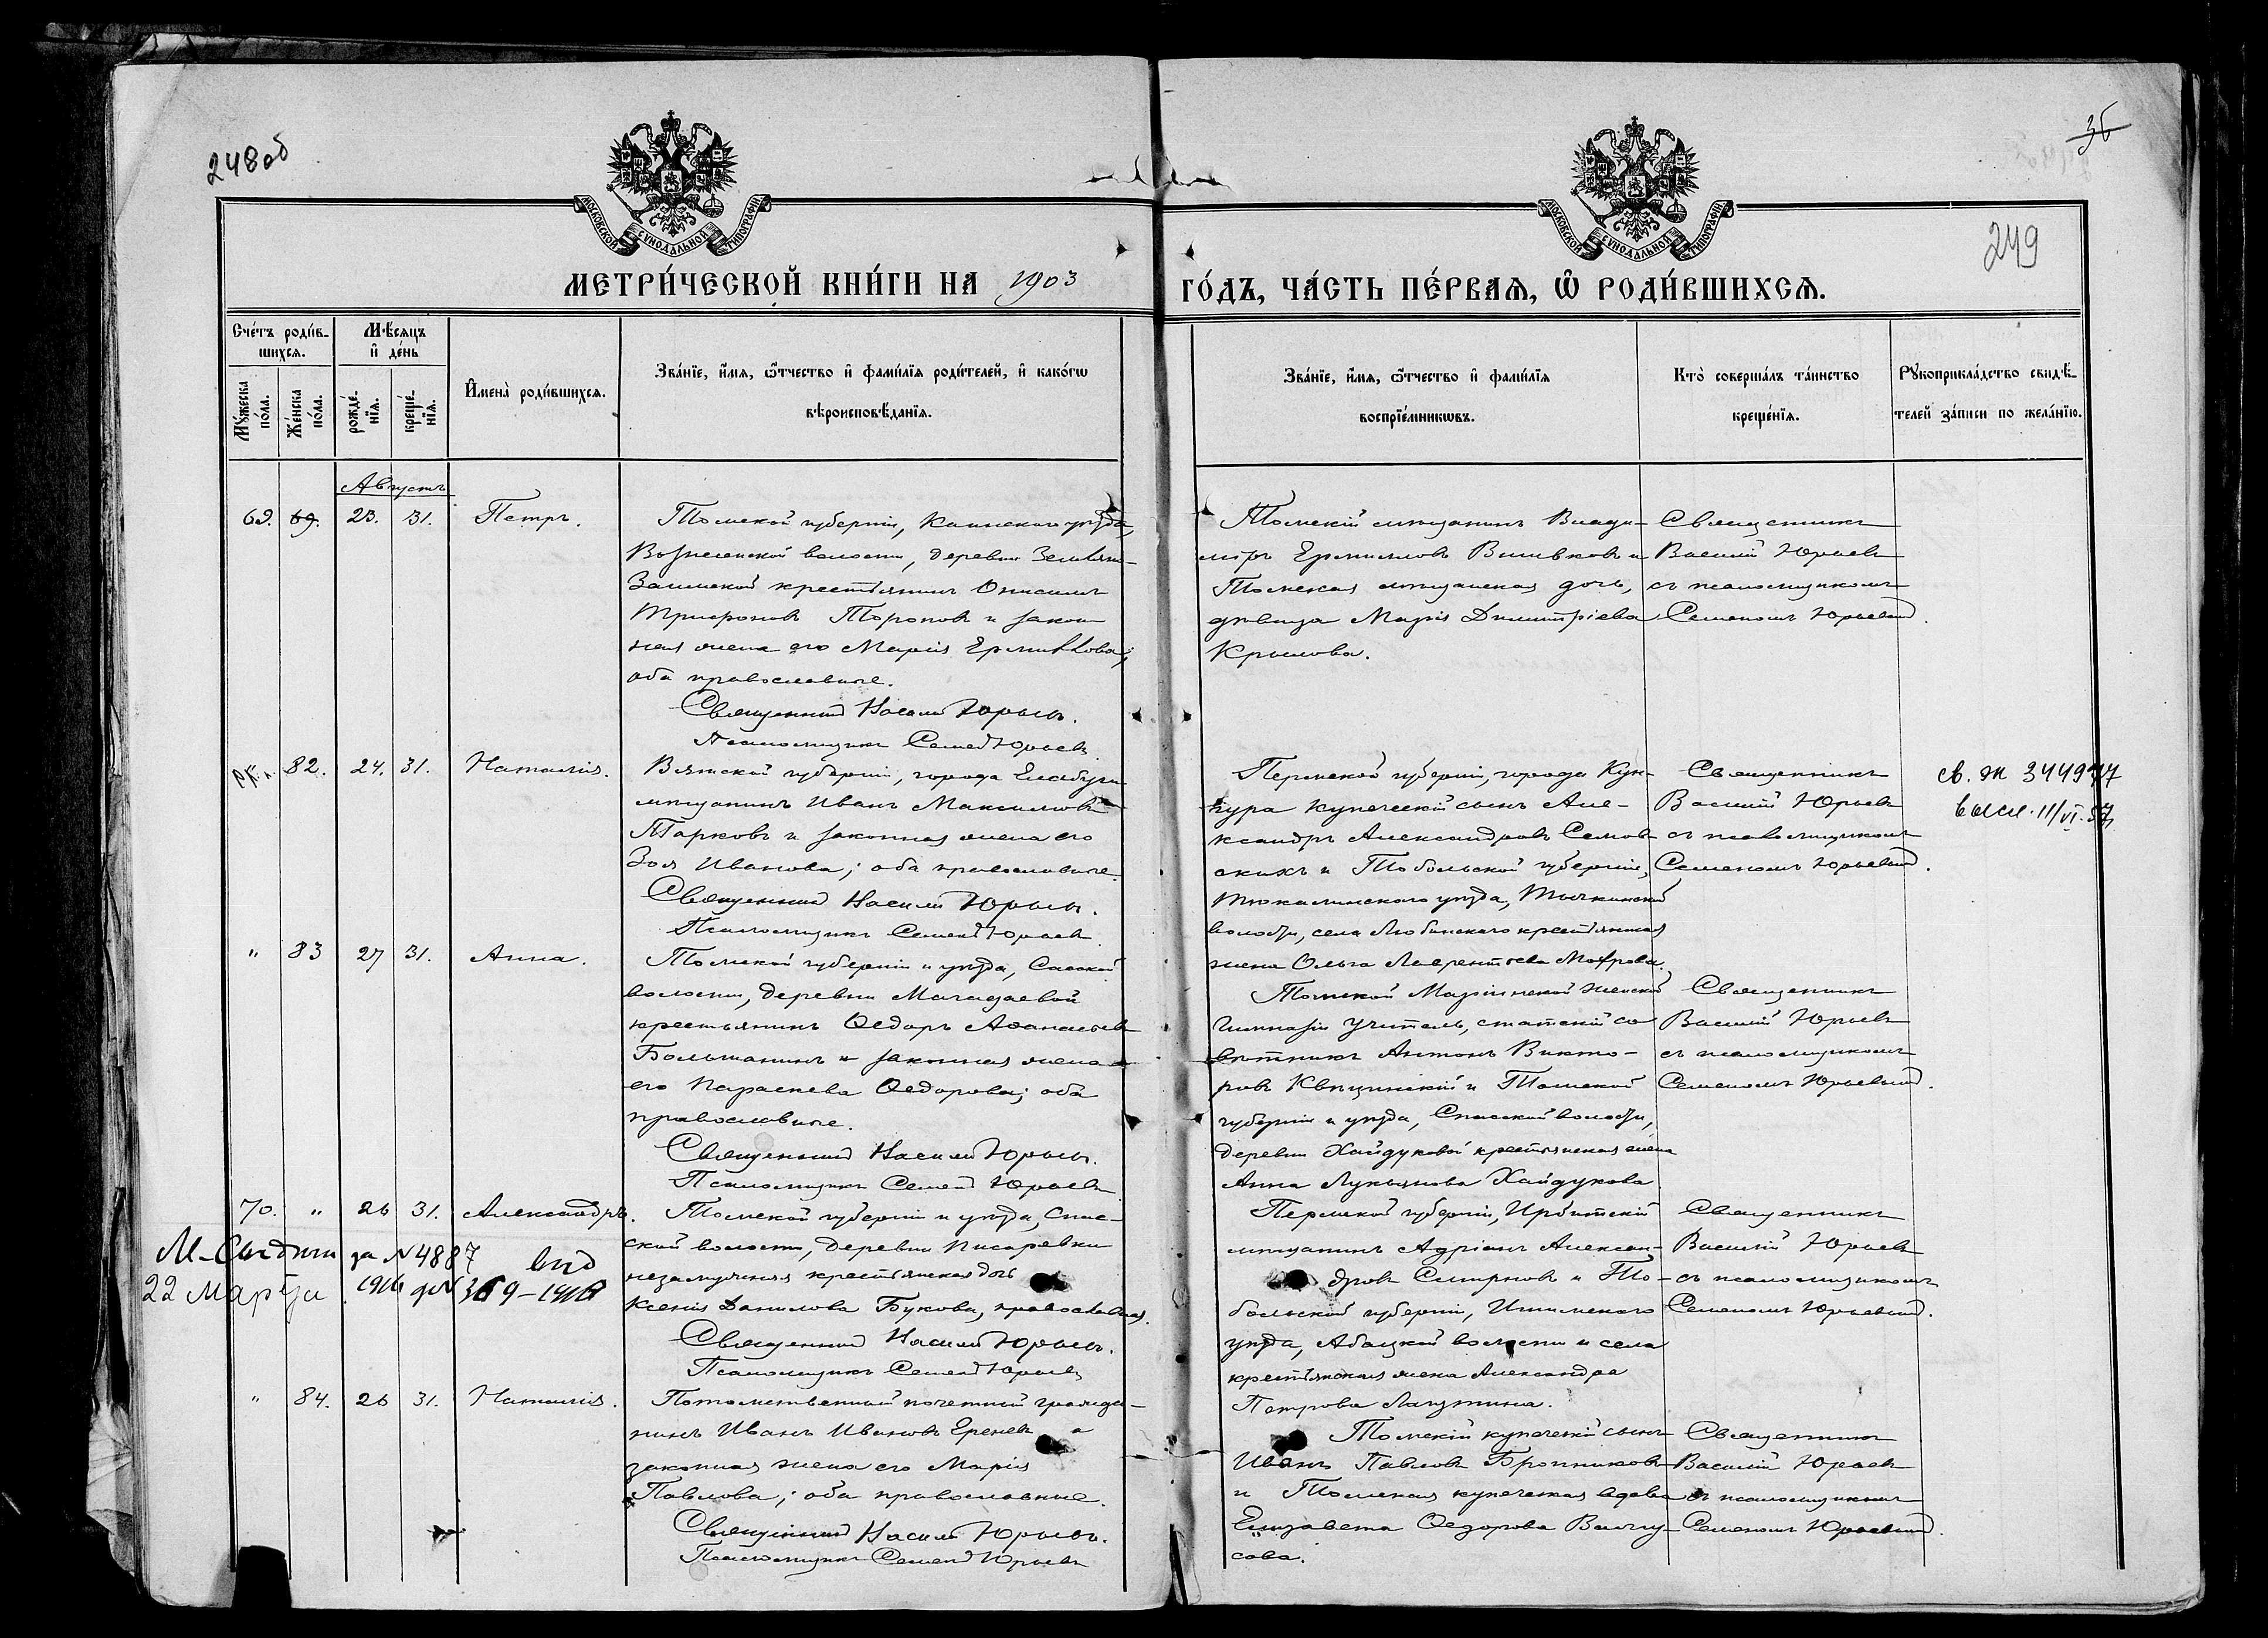 248об
36
249
МОСКОВСКОЙ СѴНОДАЛЬНОЙ ТИПОГРАФІИ
МОСКОВСКОЙ СѴНОДАЛЬНОЙ ТИПОГРАФІИ
МЕТРИ́ЧЕСКОЙ КНИ́ГИ НА 1903
ГО́ДЪ, ЧА́СТЬ ПЕ́РВАѦ, Ѿ РОДИ́ВШИХСѦ.
Сче́тъ роди́в-
шихсѧ.
Му́жеска по́ла.
Же́нска по́ла.
Мѣ́сѧцъ
и҆ де́нь
рожде́-
нїѧ.
креще́-
нїѧ.
И҆мена̀ роди́вшихсѧ.
Зва́нїе, и҆́мѧ, ѻ҆́тчество и҆ фами́лїѧ роди́телей, и҆ како́гѡ
вѣроисповѣ́данїѧ.
Зва́нїе, и҆́мѧ, ѻ҆́тчество и҆ фами́лїѧ
воспрїе́мникѡвъ.
Кто̀ соверша́лъ та́инство
креще́нїѧ.
Рꙋкоприкла́дство свидѣ́-
телей за́писи по жела́нїю.
Августъ
69. 69. 23. 31. Петръ.
Томской губерніи, Каинскаго уѣзда,
Вознесенской волости, деревни
Заимской крестьянинъ Онисимъ
Трифоновъ Торопов и закон
ная жена его Марія
оба православные.
Священникъ Василій Юрьевъ.
Псаломщикъ Семенъ Юрьевъ
Томскій мѣщанинъ Влади-
міръ и
Томская мѣщанская дочь,
дѣвица Марія Димитріева
Крылова.
Священникъ
Василій Юрьевъ
съ псаломщикомъ
Семеномъ Юрьевымъ.
82. 24. 31. Наталія.
Вятской губерніи, города Елабуги
мѣщанинъ Иванъ Максимовъ
Марковъ и законная жена его
Зоя Иванова; оба православные.
Священникъ Василій Юрьевъ.
Псаломщикъ Семенъ Юрьевъ.
Пермской губерніи, города Кун-
гура купеческій сынъ Але-
ксандръ Александровъ Семов-
скихъ и Тобольской губерніи,
Тюкалинскаго уѣзда,
волости, села Любинскаго крестьянская
жена Ольга Лаврентьева
Священникъ
Василій Юрьевъ
съ псаломщикомъ
Семеномъ Юрьевымъ.
св. 344977
высл. 11/VI.57
" 83 27 31. Анна.
Томской губерніи и уѣзда, Спасской
волости, деревни Магадаевой
крестьянинъ Ѳедоръ Аѳанасьевъ
Большанинъ и законная жена
его Параскева Ѳедорова; оба
православные.
Священникъ Василій Юрьевъ.
Псаломщикъ Семенъ Юрьевъ
Томской Маріинской женской
гимназіи учитель, статскій со
вѣтникъ Антонъ Викто-
ровъ и Томской
губерніи и уѣзда, Спасской волости,
деревни Хайдуковой крестьянская жена
Анна Лукьянова Хайдукова
Священникъ
Василій Юрьевъ
съ псаломщикомъ
Семеномъ Юрьевымъ.
70. " 26 31. Александръ.
Томской губерніи и уѣзда, Спас-
ской волости, деревни Писаревки
незамужняя крестьянская дочь
Ксенія Данилова Букова, православная.
Священникъ Василій Юрьевъ.
Псаломщикъ Семенъ Юрьевъ
за № 4887
22 марта 1916 369-1916
Пермской губерніи, Ирбитскій
мѣщанинъ Адріанъ Алексан-
дровъ Смирновъ и То-
больской губерніи, Ишимскаго
уѣзда, Абацкой волости и села
крестьянская жена Александра
Петрова
Священникъ
Василій Юрьевъ
съ псаломщикомъ
Семеномъ Юрьевымъ.
" 84. 26 31. Наталія.
Потомственный почетный гражда-
нинъ Иванъ Ивановъ Ереневъ и
законная жена его Марія
Павлова; оба православные.
Священникъ Василій Юрьевъ.
Псаломщикъ Семенъ Юрьевъ
Томскій купеческій сынъ
Иванъ Павловъ Бронниковъ
и Томская купеческая вдова
Елизавета Ѳедорова
сова.
Священникъ
Василій Юрьевъ
съ псаломщикомъ
Семеномъ Юрьевымъ.